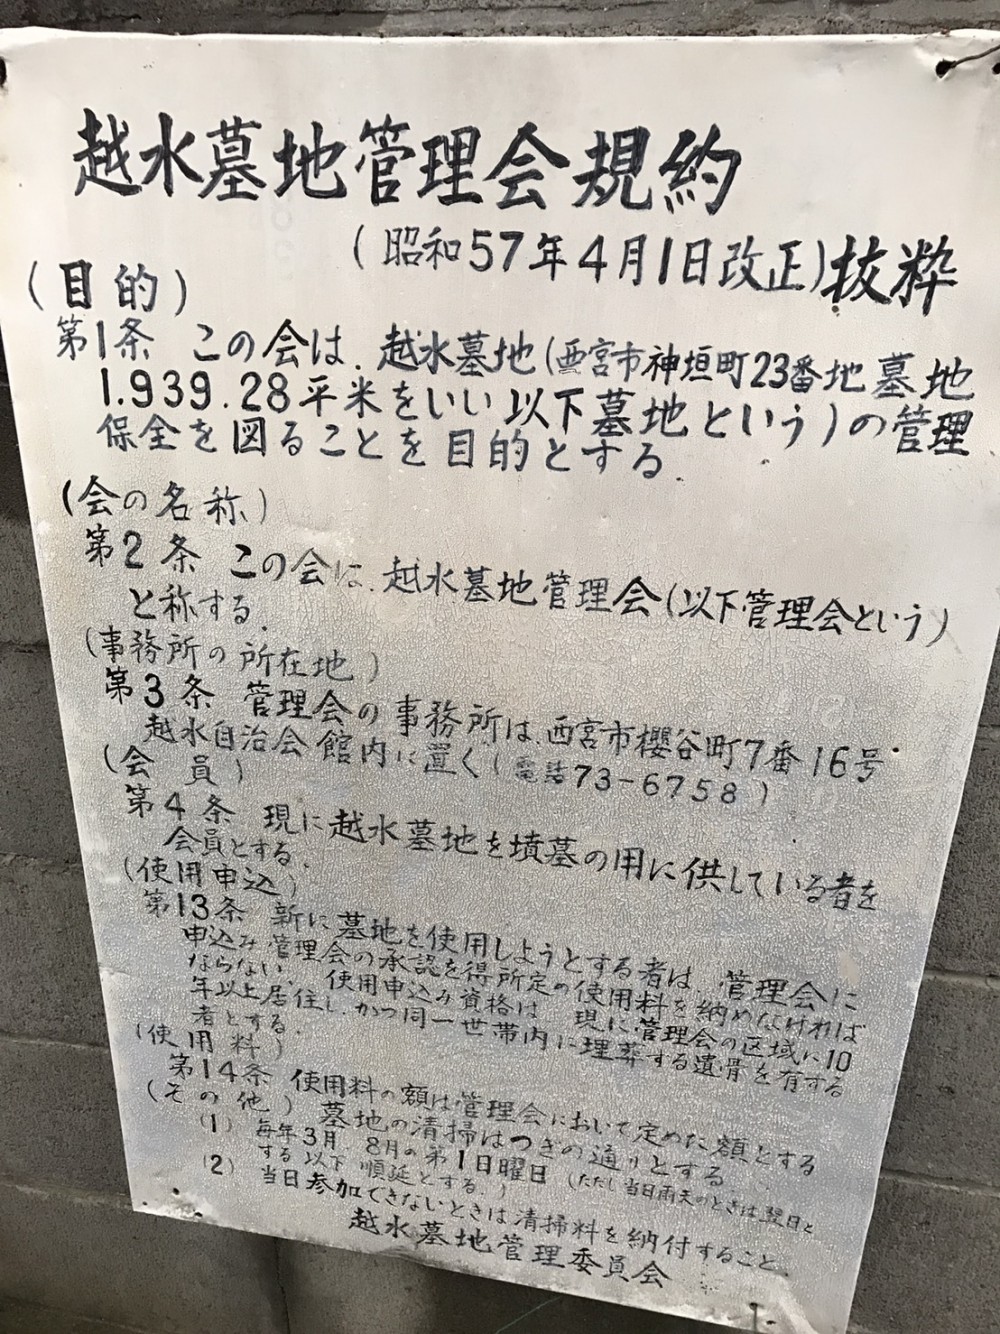 越水墓地管理会規約
(昭和57年4月1日改正)抜粋
(目的)
第1条 この会は、越水墓地(西宮市神垣町23番地墓地
1.939.28平米をいい以下墓地という)の管理
保全を図ることを目的とする
(会の名称)
第2条 この会は、越水墓地管理会(以下管理会という)
と称する.
(事務所の所在地)
第3条 管理会の事務所は、西宮市櫻谷町7番16号
越水自治会館内に置く(電話73-6758)
(会員)
第4条 現に越水墓地を墳墓の用に供している者を
会員とする.
(使用申込)
第13条 新に墓地を使用しようとする者は、管理会に
申込み管理会の承認を得所定の使用料を納めなければ
ならない. 使用申込み資格は 現に管理会の区域に10
年以上居住し.かつ同一世帯内に埋葬する遺骨を有する
者とする.
(使用料)
第14条 使用料の額は管理会において定めた額とする
(その他) 墓地の清掃はつぎの通りとする
(1) 毎年3月 8月の第1日曜日(ただし当日雨天のときは翌日と
する以下順延とする.)
(2) 当日参加できないときは清掃料を納付すること.
越水墓地管理委員会